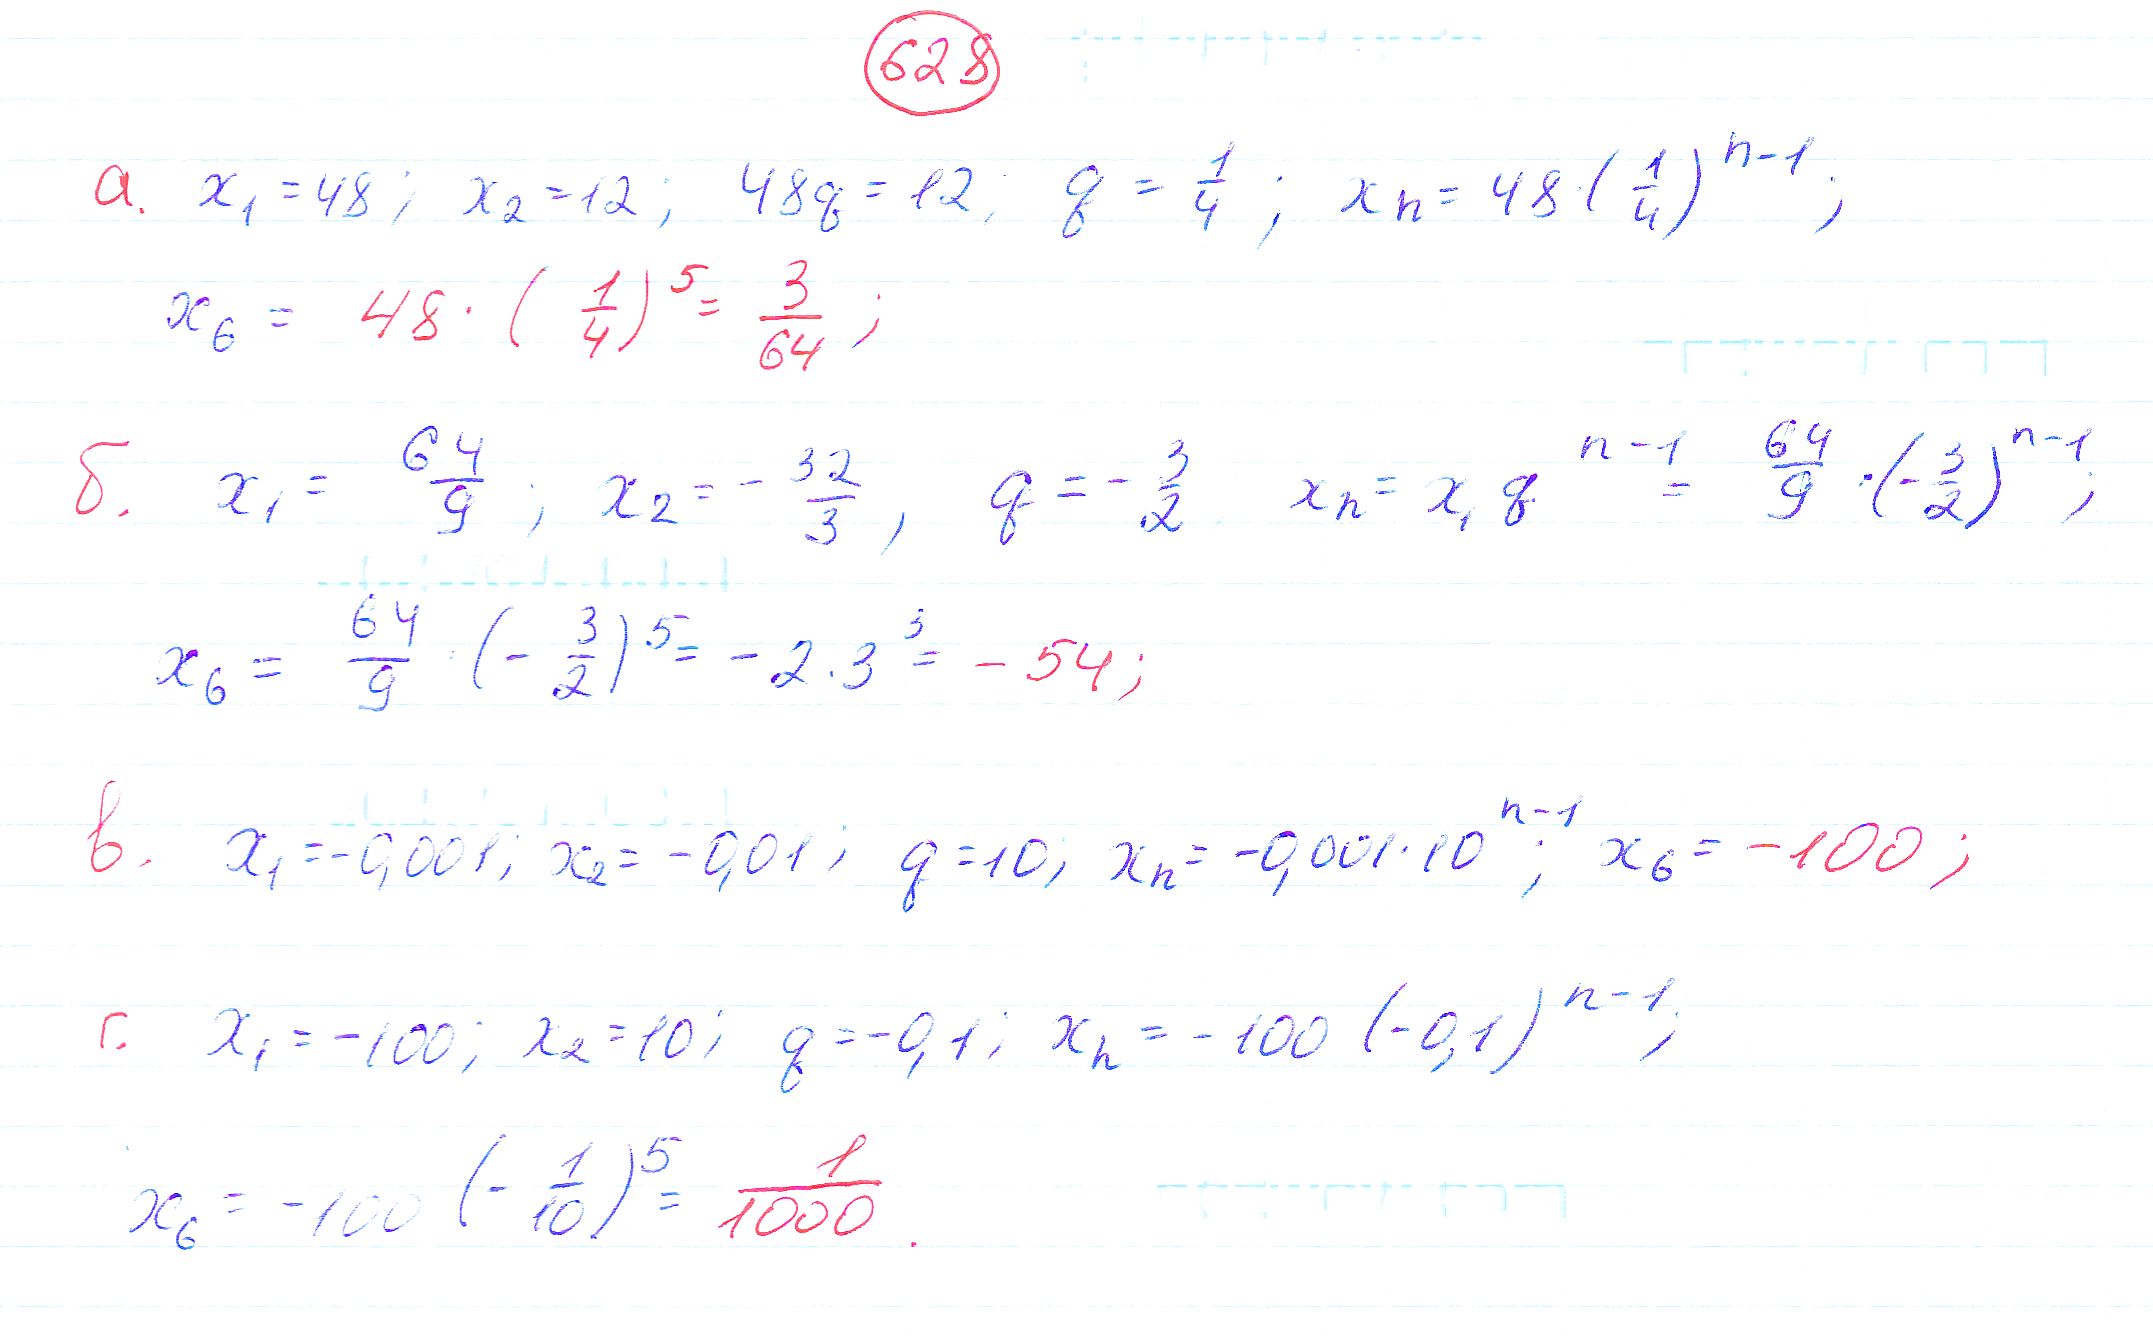 628
а. x₁ = 48; x₂ = 12; 48q = 12; q = 1/4; xₙ = 48·(1/4)ⁿ⁻¹;
x₆ = 48·(1/4)⁵ = 3/64;
б. x₁ = 64/9; x₂ = -32/3, q = -3/2 xₙ = x₁qⁿ⁻¹ = 64/9·(-3/2)ⁿ⁻¹;
x₆ = 64/9·(-3/2)⁵ = -2·3³ = -54;
в. x₁ = -0,001; x₂ = -0,01; q = 10; xₙ = -0,001·10ⁿ⁻¹; x₆ = -100;
г. x₁ = -100; x₂ = 10; q = -0,1; xₙ = -100 (-0,1)ⁿ⁻¹;
x₆ = -100 (-1/10)⁵ = 1/1000.